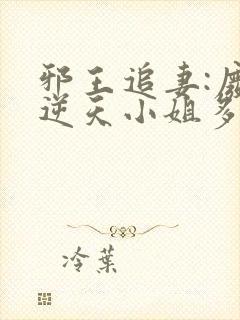 邪王追妻:
逆天小姐
冷葉